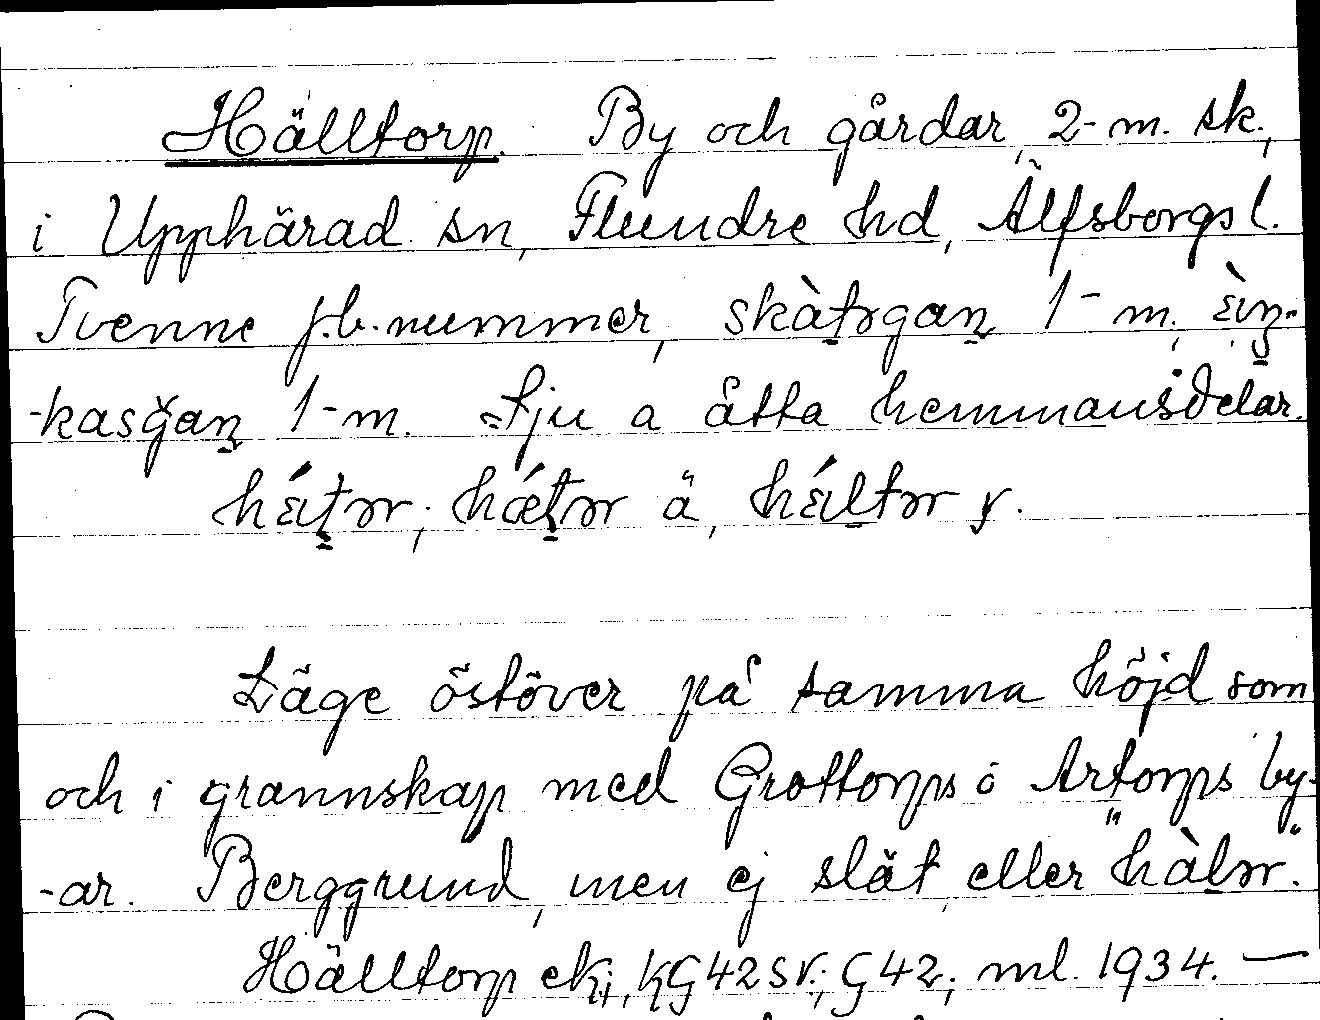 Hälltorp. By och gårdar, 2-m. sk.,
i Upphärad sn, Flundre hd, Älfsborgs l.
Tvenne j.b. nummer, skàt̠rgan̠ 1-m.,
1-m. Sju a åtta hemmansdelar.
ä,
Läge östöver på samma höjd som
och i grannskap med Grottorps o Artorps by-
-ar. Berggrund, men ej slät, eller
Hälltorp ek; KG42SV.; G42; ml. 1934. —